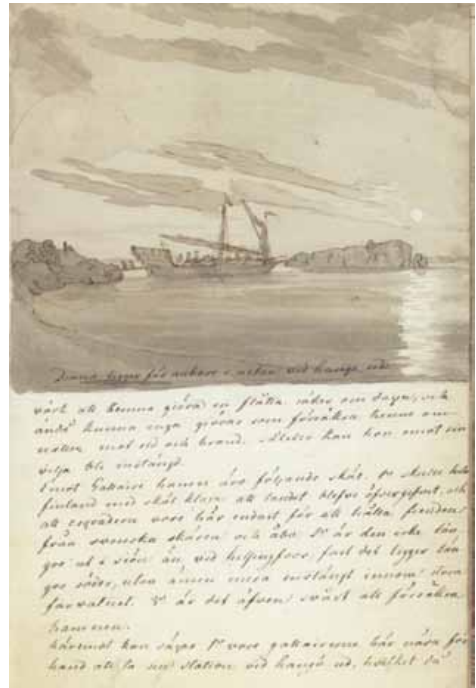 Diana ligger för ankare i neden vid hangö udd
värt att kunna giöra en flåtta säker om dagen, och
ändå kunna inga göras som försäkra henne om
natten mot eld och brand. Aldrig kan hon emot sin
vilja bli instängd.
Emot hamnen äro följande skäl. 1º skulle hela
finland med skäl klara att landet blefve öfvergifvet, och
att esquadern vore här endast för att hålla fienden
från svenska skären och åbo. 2º är den icke län
gre ut i siön än vid helsingfors, fast det ligger län
gre söder, utan ännu mera instängt innom stora
farvatnet. 3º är det äfven svårt att försäkra
hamnen.
häremot kan sägas 1º vore galleirerne här nära för
hand att ta sin station vid hangö ud, hvilket då